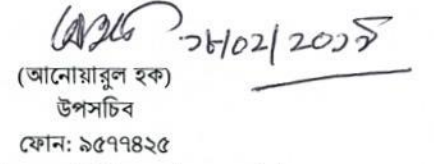 ২৮/০২/২০১৯
(আনোয়ারুল হক)
উপসচিব
ফোন: ৯৫৭৭৪২৫